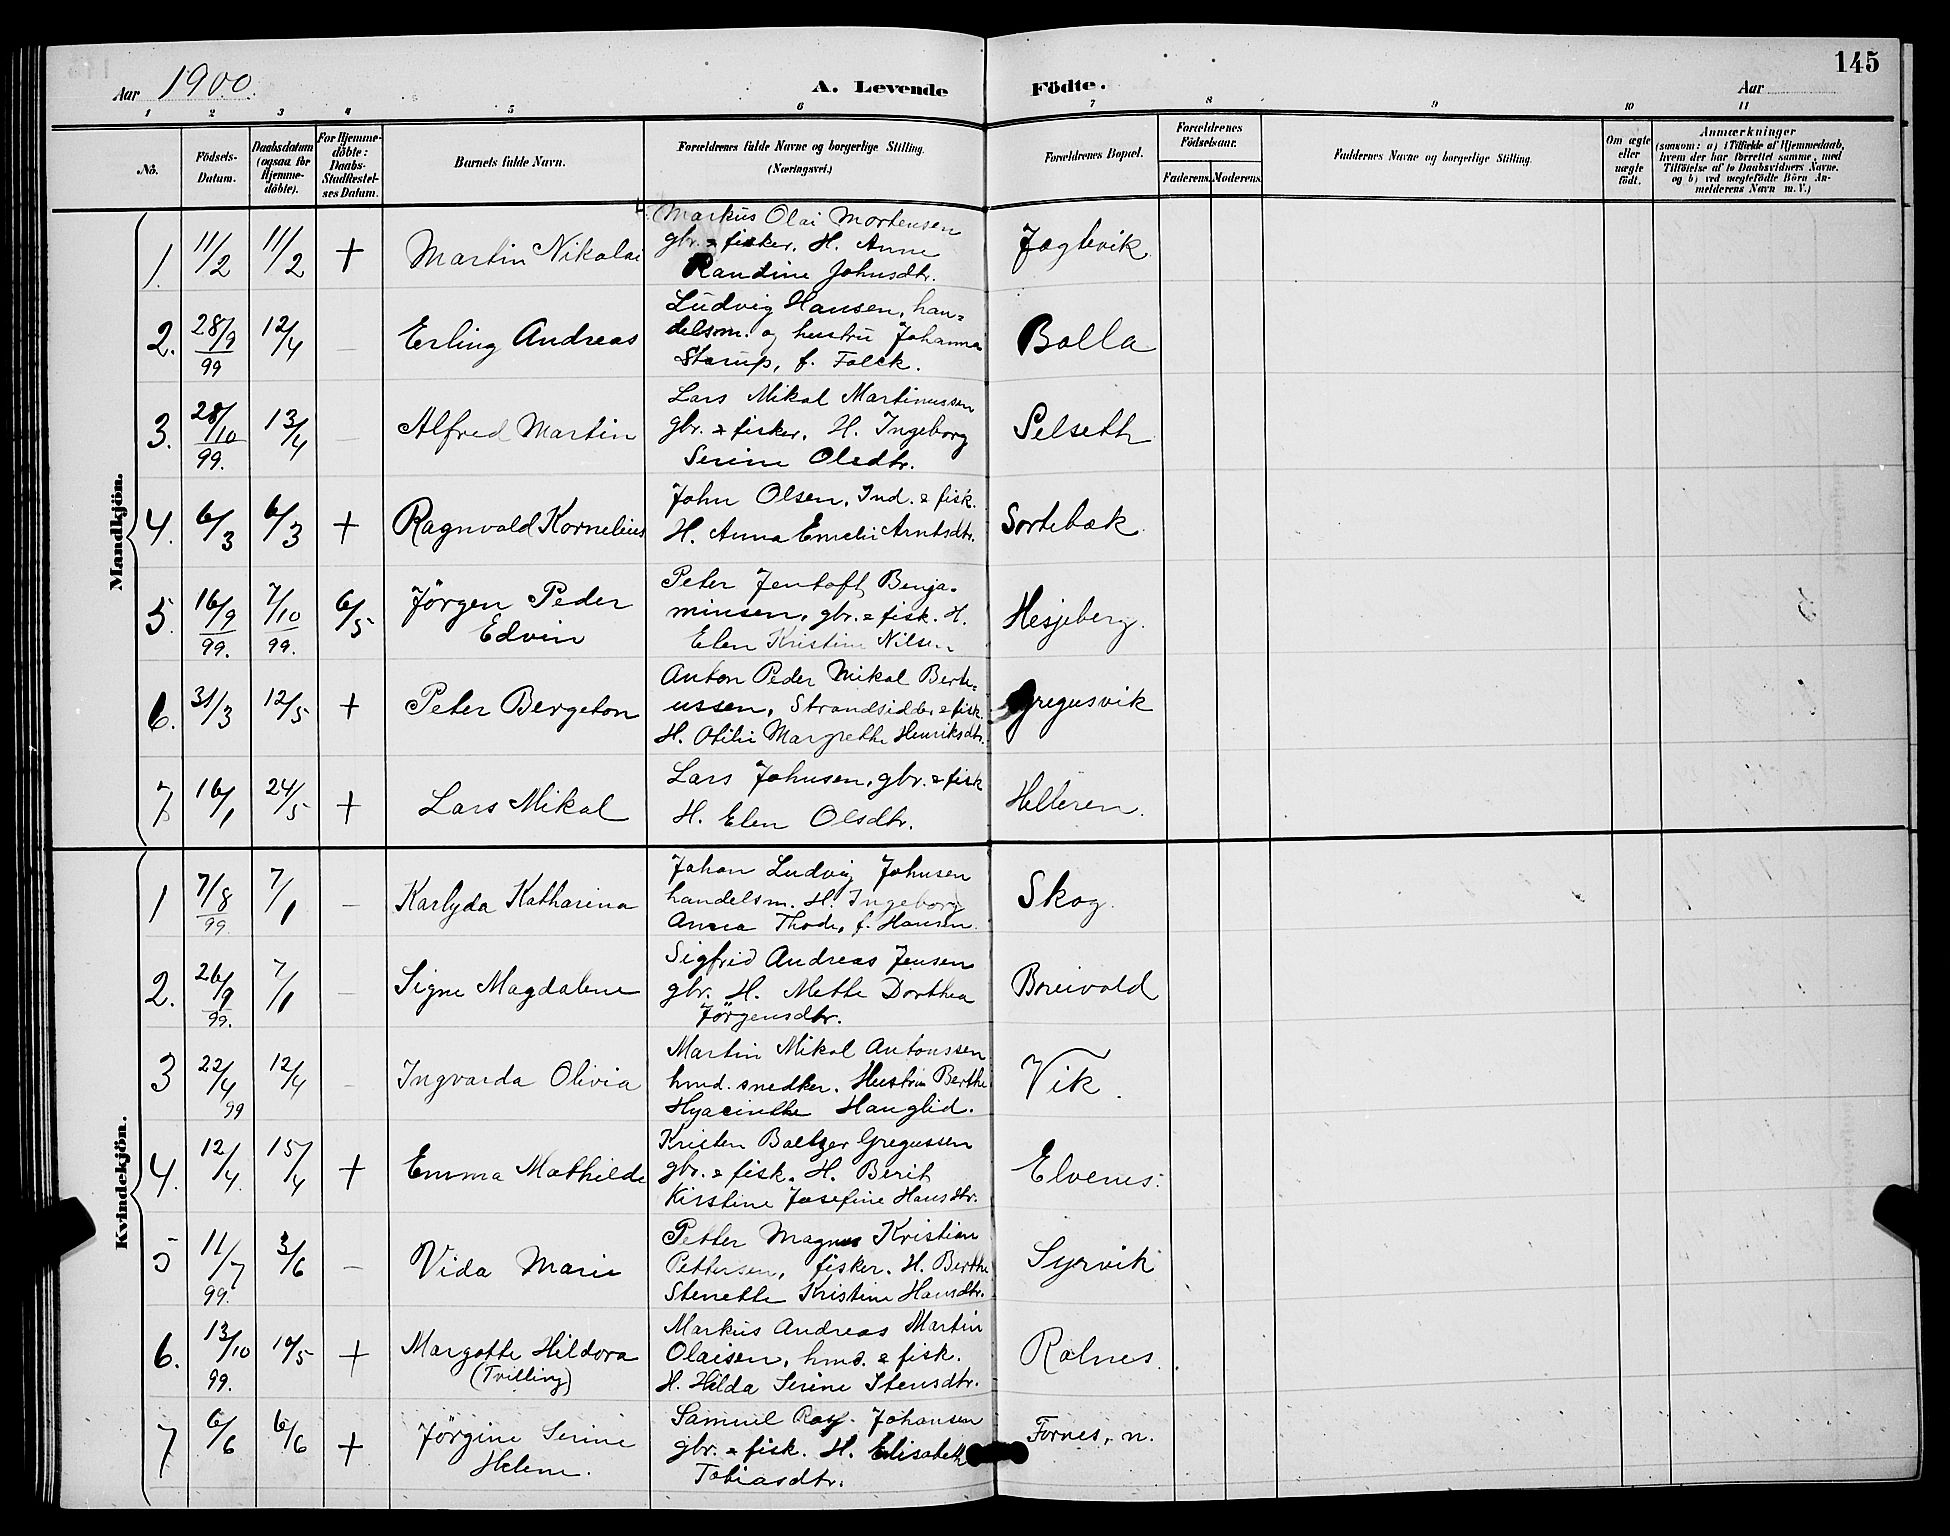 Aar 1900. A. Levende Födte. Aar 145
1 2 3 4 5 6 7 8 9 10 11
No. Födsels-Datum. Daabsdatum (ogsaa for Hjemme-döbte). For Hjemme-döbte: Daabs-Stadfæstel-ses Datum. Barnets fulde Navn. Forældrenes fulde Navne og borgerlige Stilling. (Næringsvei.) Forældrenes Bopæl. Forældrenes Födselsaar. Faderens. Moderens. Faddernes Navne og borgerlige Stilling. Om ægte eller uægte födt. Anmærkninger (saasom: a) i Tilfælde af Hjemmedaab, hvem der har forrettet samme, med Tilföielse af to Daabsvidners Navne. og b) ved uægtefödte Börn An-melderens Navn m. V.)
Mandkjön.
1. 11/2 11/2 + Martin Nikolai Markus Olai Mortensen
gbr. & fisker. H. Anne Jægtvik
Randine Johnsdtr.
2. 28/9 99 12/4 — Erling Andreas Ludvig Hansen, han=
delsm. og hustru Johanna Bolla
Starup, f. Falck.
3. 28/10 99. 13/4 — Alfred Martin Lars Mikal Martinussen
gbr. & fisker. H. Ingeborg Selseth
Serine Olsdtr.
4. 6/3 6/3 + Ragnvald Kornelius John Olsen, Ind. & fisk.
H. Anna Emelie Arntsdtr. Sortebæk.
5. 16/9 99. 7/10 99. 6/5 Jörgen Peder Edvin Peter Jentoft Benja-
minsen, gbr. & fisk. H. Hesjeberg.
Elen Kristine Nilsen
6. 31/3 12/5 + Peter Bergeton Anton Peder Mikal Berte=
ussen, Strandsidder & fisk. Gregusvik
H. Otilie Margrethe Henriksdtr.
7 16/1 24/5 + Lars Mikal Lars Johnsen, gbr. & fisk
H. Elen Olsdtr. Helleren.
Kvindekjön.
1 7/8 99. 7/1 — Karlyda Katharina Johan Ludvig Johnsen
handelsm. H. Ingeborg Skog.
Anna Thode, f. Hansen.
2. 26/9 99. 7/1 — Signe Magdalene Sigfrid Andreas Jensen
gbr. H. Mette Dorthea Breivold
Jörgensdtr.
3 22/4 99 12/4 — Ingvarda Olivia Martin Mikal Antonssen
hmd. snedker. Hustru Berthe Vik.
Hyacinthe Hanglid.
4. 12/4. 15/4 + Emma Mathilde Kristen Baltzer Gregussen
gbr. & fisk. H. Berit Elvenes.
Kirstine Josefine Hansdtr.
5 11/7 99. 3/6 — Vida Marie Petter Magnus Kristian
Pettersen, fisker. H. Berthe Syrvik
Stenette Kristine Hansdtr.
6. 13/10 99. 10/5 + Margothe Hildora (Tvilling) Markus Andreas Martin
Olaisen, hmd. & fisk. Rølnes.
H. Hilda Serine Stensdtr.
7 6/6 6/6 + Jörgine Serine Helene. Samuel Johansen
gbr. & fisk. H. Elisabeth Fornes, n.
Tobiasdtr.